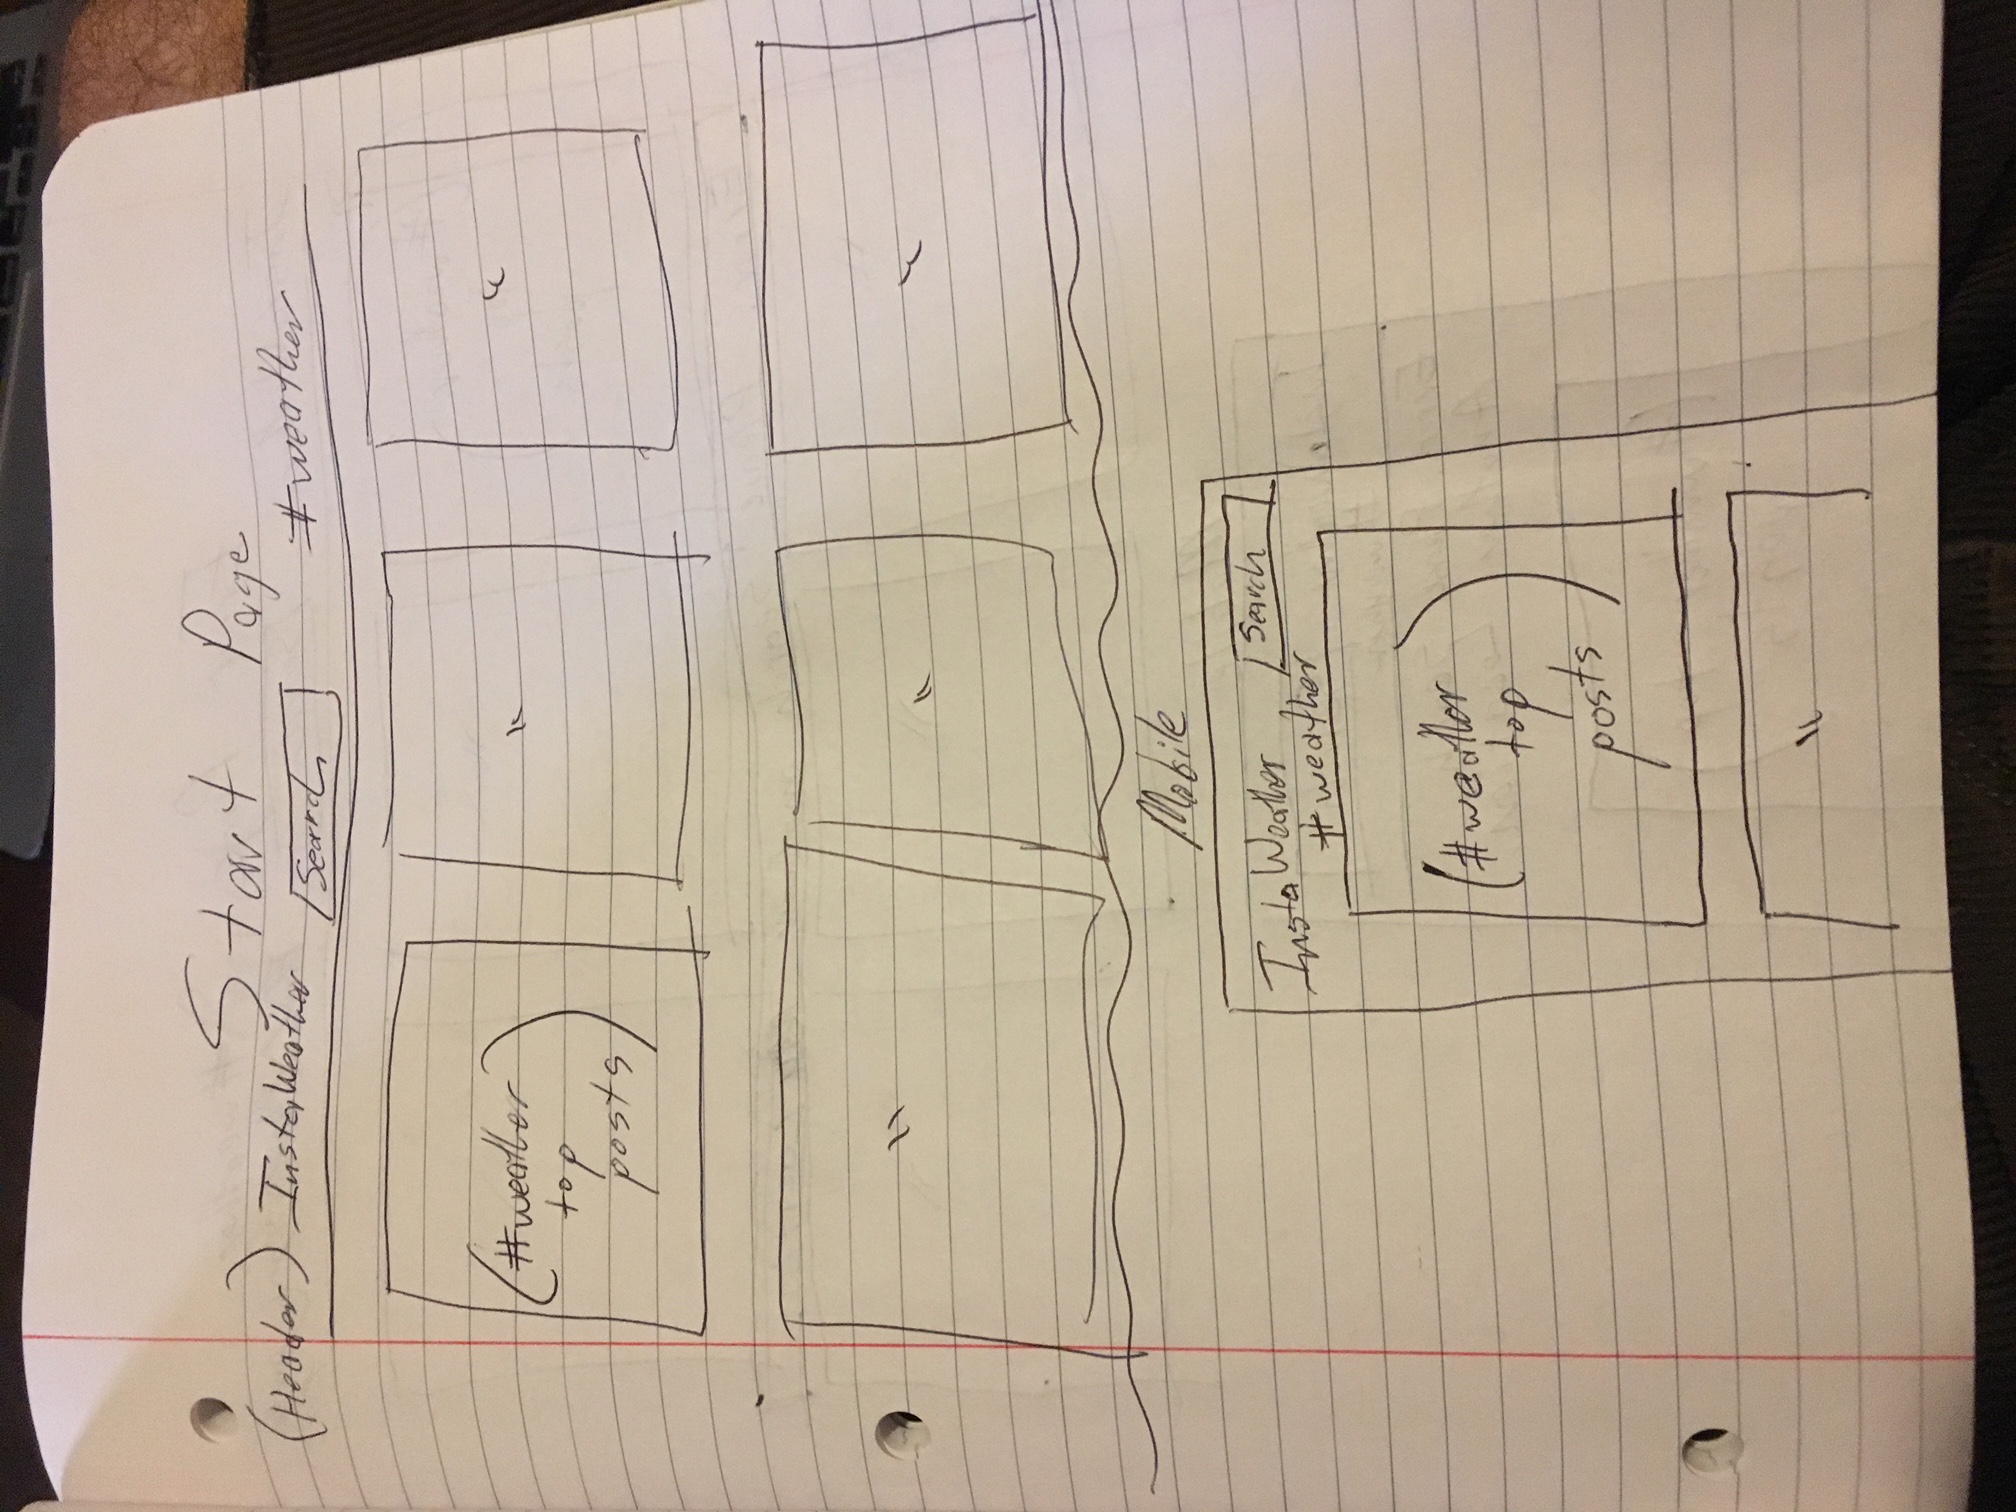 Start Page
(Header) InstaWeather Search #weather
(#weather
top
posts)
" "
" " "
Mobile
InstaWeather Search
#weather
(#weather
top
posts)
"